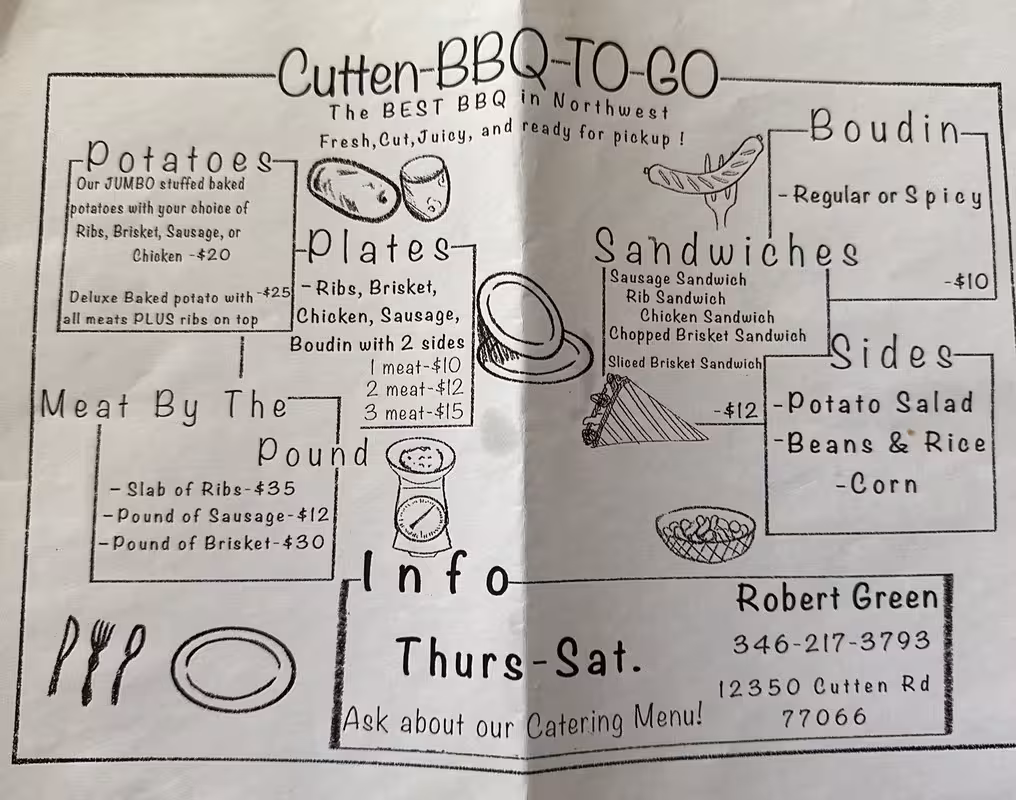 Cutten-BBQ-TO-GO
The BEST BBQ in Northwest
Fresh,Cut,Juicy, and ready for pickup !
Potatoes
Our JUMBO stuffed baked
potatoes with your choice of
Ribs, Brisket, Sausage, or
Chicken -$20
Deluxe Baked potato with -$25
all meats PLUS ribs on top
Plates
- Ribs, Brisket,
Chicken, Sausage,
Boudin with 2 sides
1 meat-$10
2 meat-$12
3 meat-$15
Boudin
- Regular or Spicy
-$10
Sandwiches
Sausage Sandwich
Rib Sandwich
Chicken Sandwich
Chopped Brisket Sandwich
Sliced Brisket Sandwich
-$12
Sides
-Potato Salad
-Beans & Rice
-Corn
Meat By The
Pound
- Slab of Ribs-$35
-Pound of Sausage-$12
-Pound of Brisket-$30
Info
Thurs-Sat.
Ask about our Catering Menu!
Robert Green
346-217-3793
12350 Cutten Rd
77066